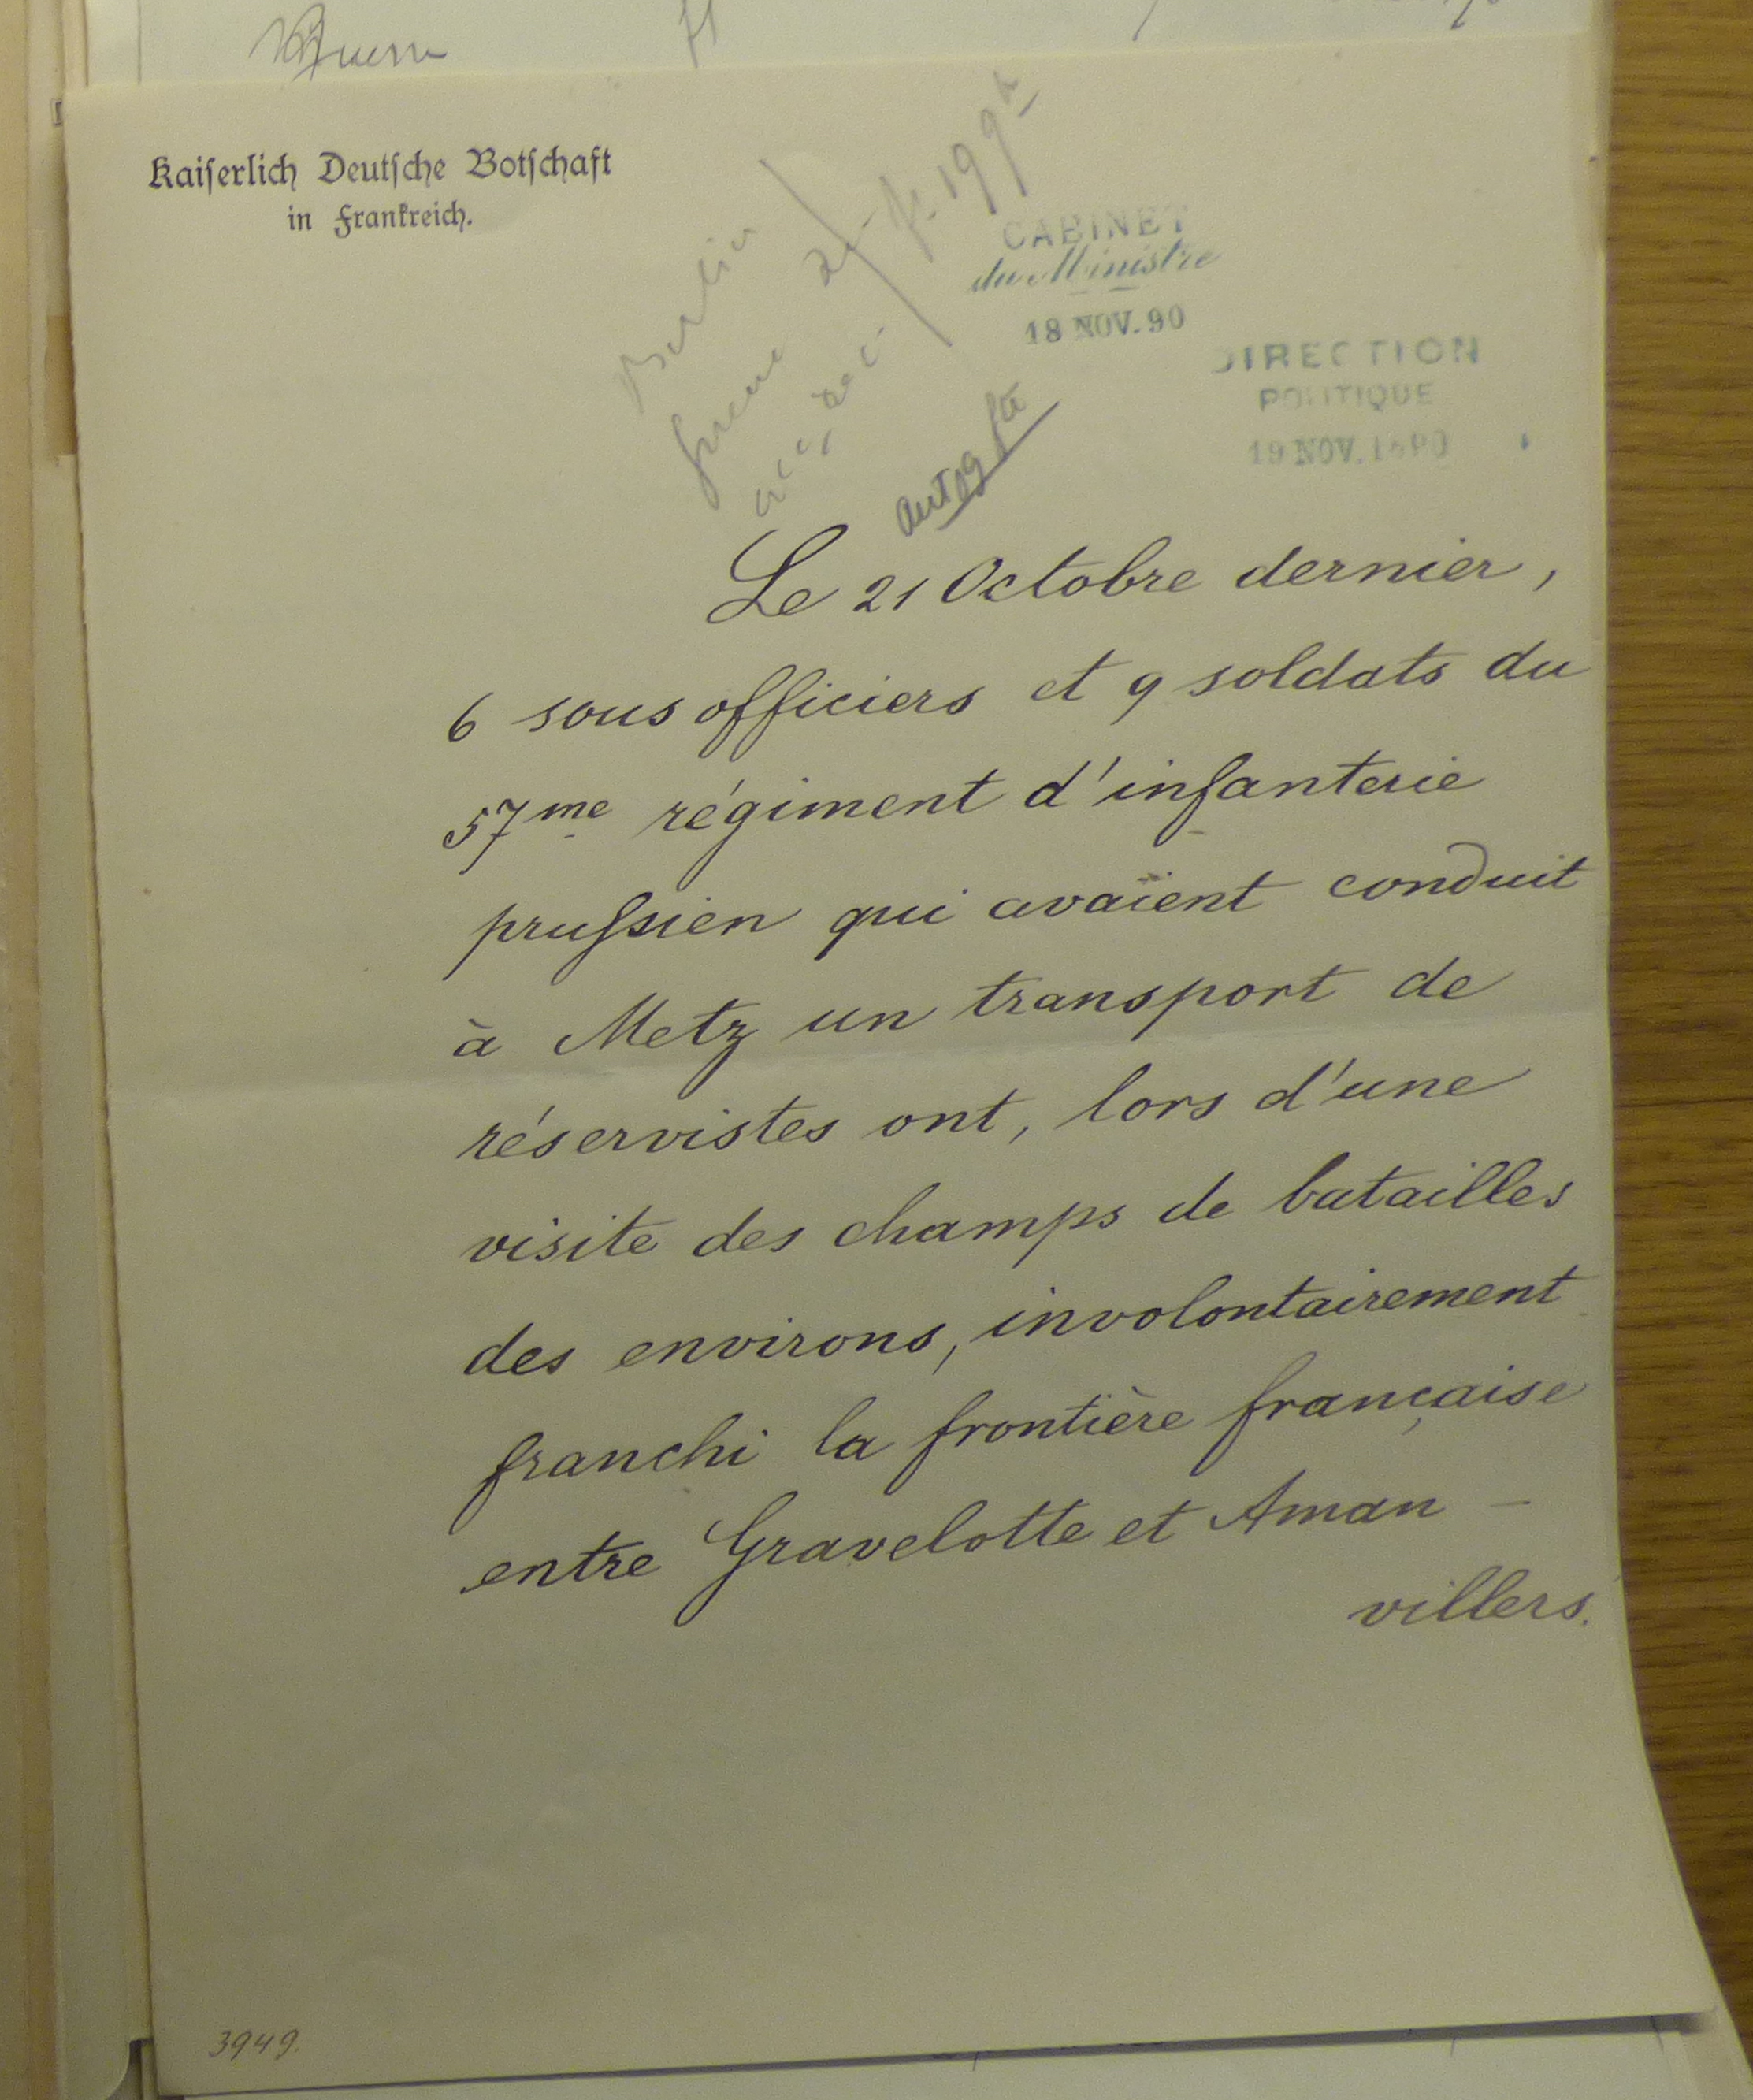 Kaiserlich Deutsche Botschaft
in Frankreich.
Berlin
CABINET
du Ministre
18 NOV. 90
DIRECTION
POLITIQUE
19 NOV. 1890
Le 21 Octobre dernier,
6 sous officiers et 9 soldats du
57me régiment d'infanterie
prussien qui avaient conduit
à Metz un transport de
réservistes ont, lors d'une
visite des champs de batailles
des environs, involontairement
franchi la frontière française
entre Gravelotte et Aman-
villers.
3949.